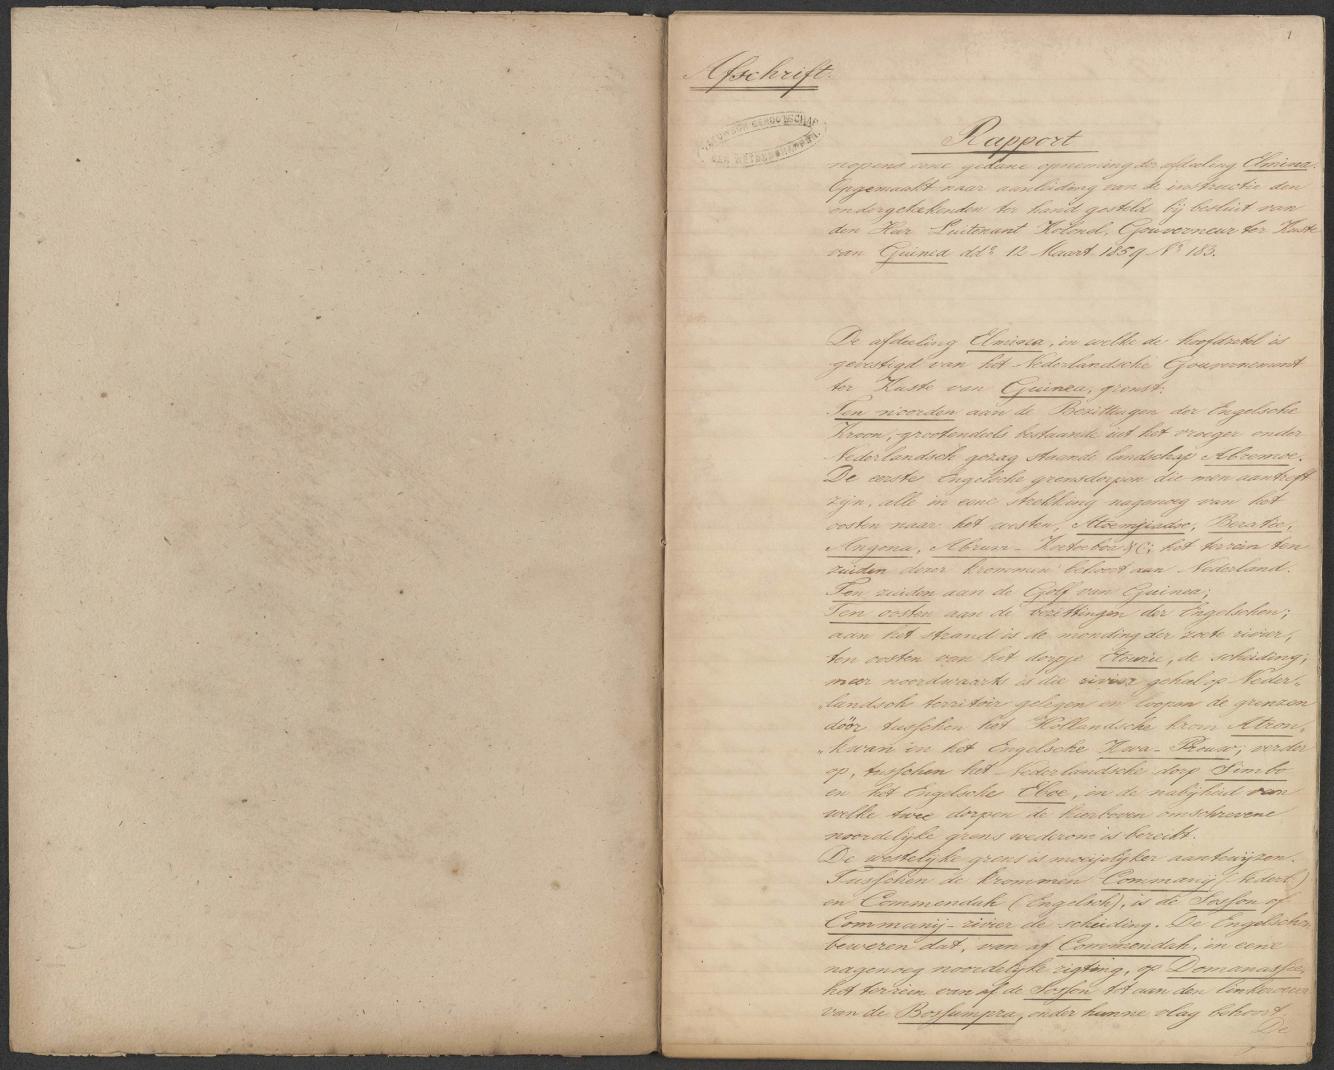 1
Afschrift.
Rapport
nopens eene gedane opneming der afdeeling Elmina.
Opgemaakt naar aanleiding van de instructie den
ondergeteekenden ter hand gesteld bij besluit van
den Heer Luitenant Kolonel, Gouverneur ter Kuste
van Guinea dd. 12 Maart 1859 No 183.
De afdeeling Elmina, in welke de hoofdzetel is
gevestigd van het Nederlandsche Gouvernement
ter Kuste van Guinea, grenst:
Ten noorden aan de Bezittingen der Engelsche
Kroon, grootendeels bestaande uit het vroeger onder
Nederlandsch gezag staande landschap Abremoe.
De eerste Engelsche grensdorpen die men aantreft
zijn, alle in eene strekking nagenoeg van het
oosten naar het westen, Beratie,
Angona, Abrum- &c; het terrein ten
zuiden dezer krommen behoort aan Nederland.
Ten zuiden aan de Golf van Guinea;
Ten oosten aan de bezittingen der Engelschen;
aan het strand is de monding der zoete rivier,
ten oosten van het dorpje de scheiding;
meer noordwaarts is die rivier geheel op Neder-
„landsch territoir gelegen en loopen de grenzen
dóór tusschen het Hollandsche krom Atron-
„kwan en het Engelsche Kwa-Prouw; verder
op, tusschen het Nederlandsche dorp Simbo
en het Engelsche Eboe, in de nabijheid van
welke twee dorpen de hierboven omschrevene
noordelijke grens wederom is bereikt.
De westelijke grens is moeijelijker aantewijzen.
Tusschen de krommen Commanij (Nederl.)
en Commendah (Engelsch), is de Sosson of
Commanij-rivier de scheiding. De Engelschen
beweren dat, van af Commendah, in eene
nagenoeg noordelijke rigting, op Domanassie,
het terrein van af de Sosson tot aan den linkeroever
van de Bossumpra, onder hunne vlag behoort.
De